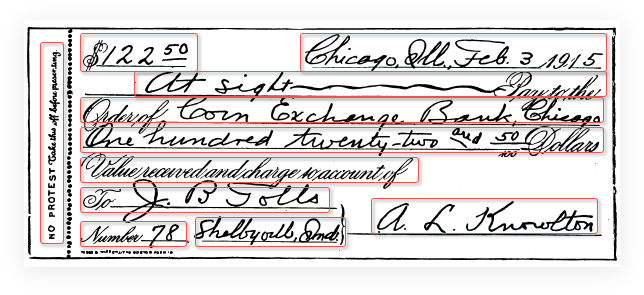 $122 50
Chicago, Ill., Feb. 3 1915
At sight Pay to the
Order of Corn Exchange Bank, Chicago
One hundred twenty-two and 50/100 Dollars
Value received and charge to account of
To J. B Tolls
A. L. Knowlton
Number 78 Shelbyvill, Ind.,
NO PROTEST Take this off before presenting.